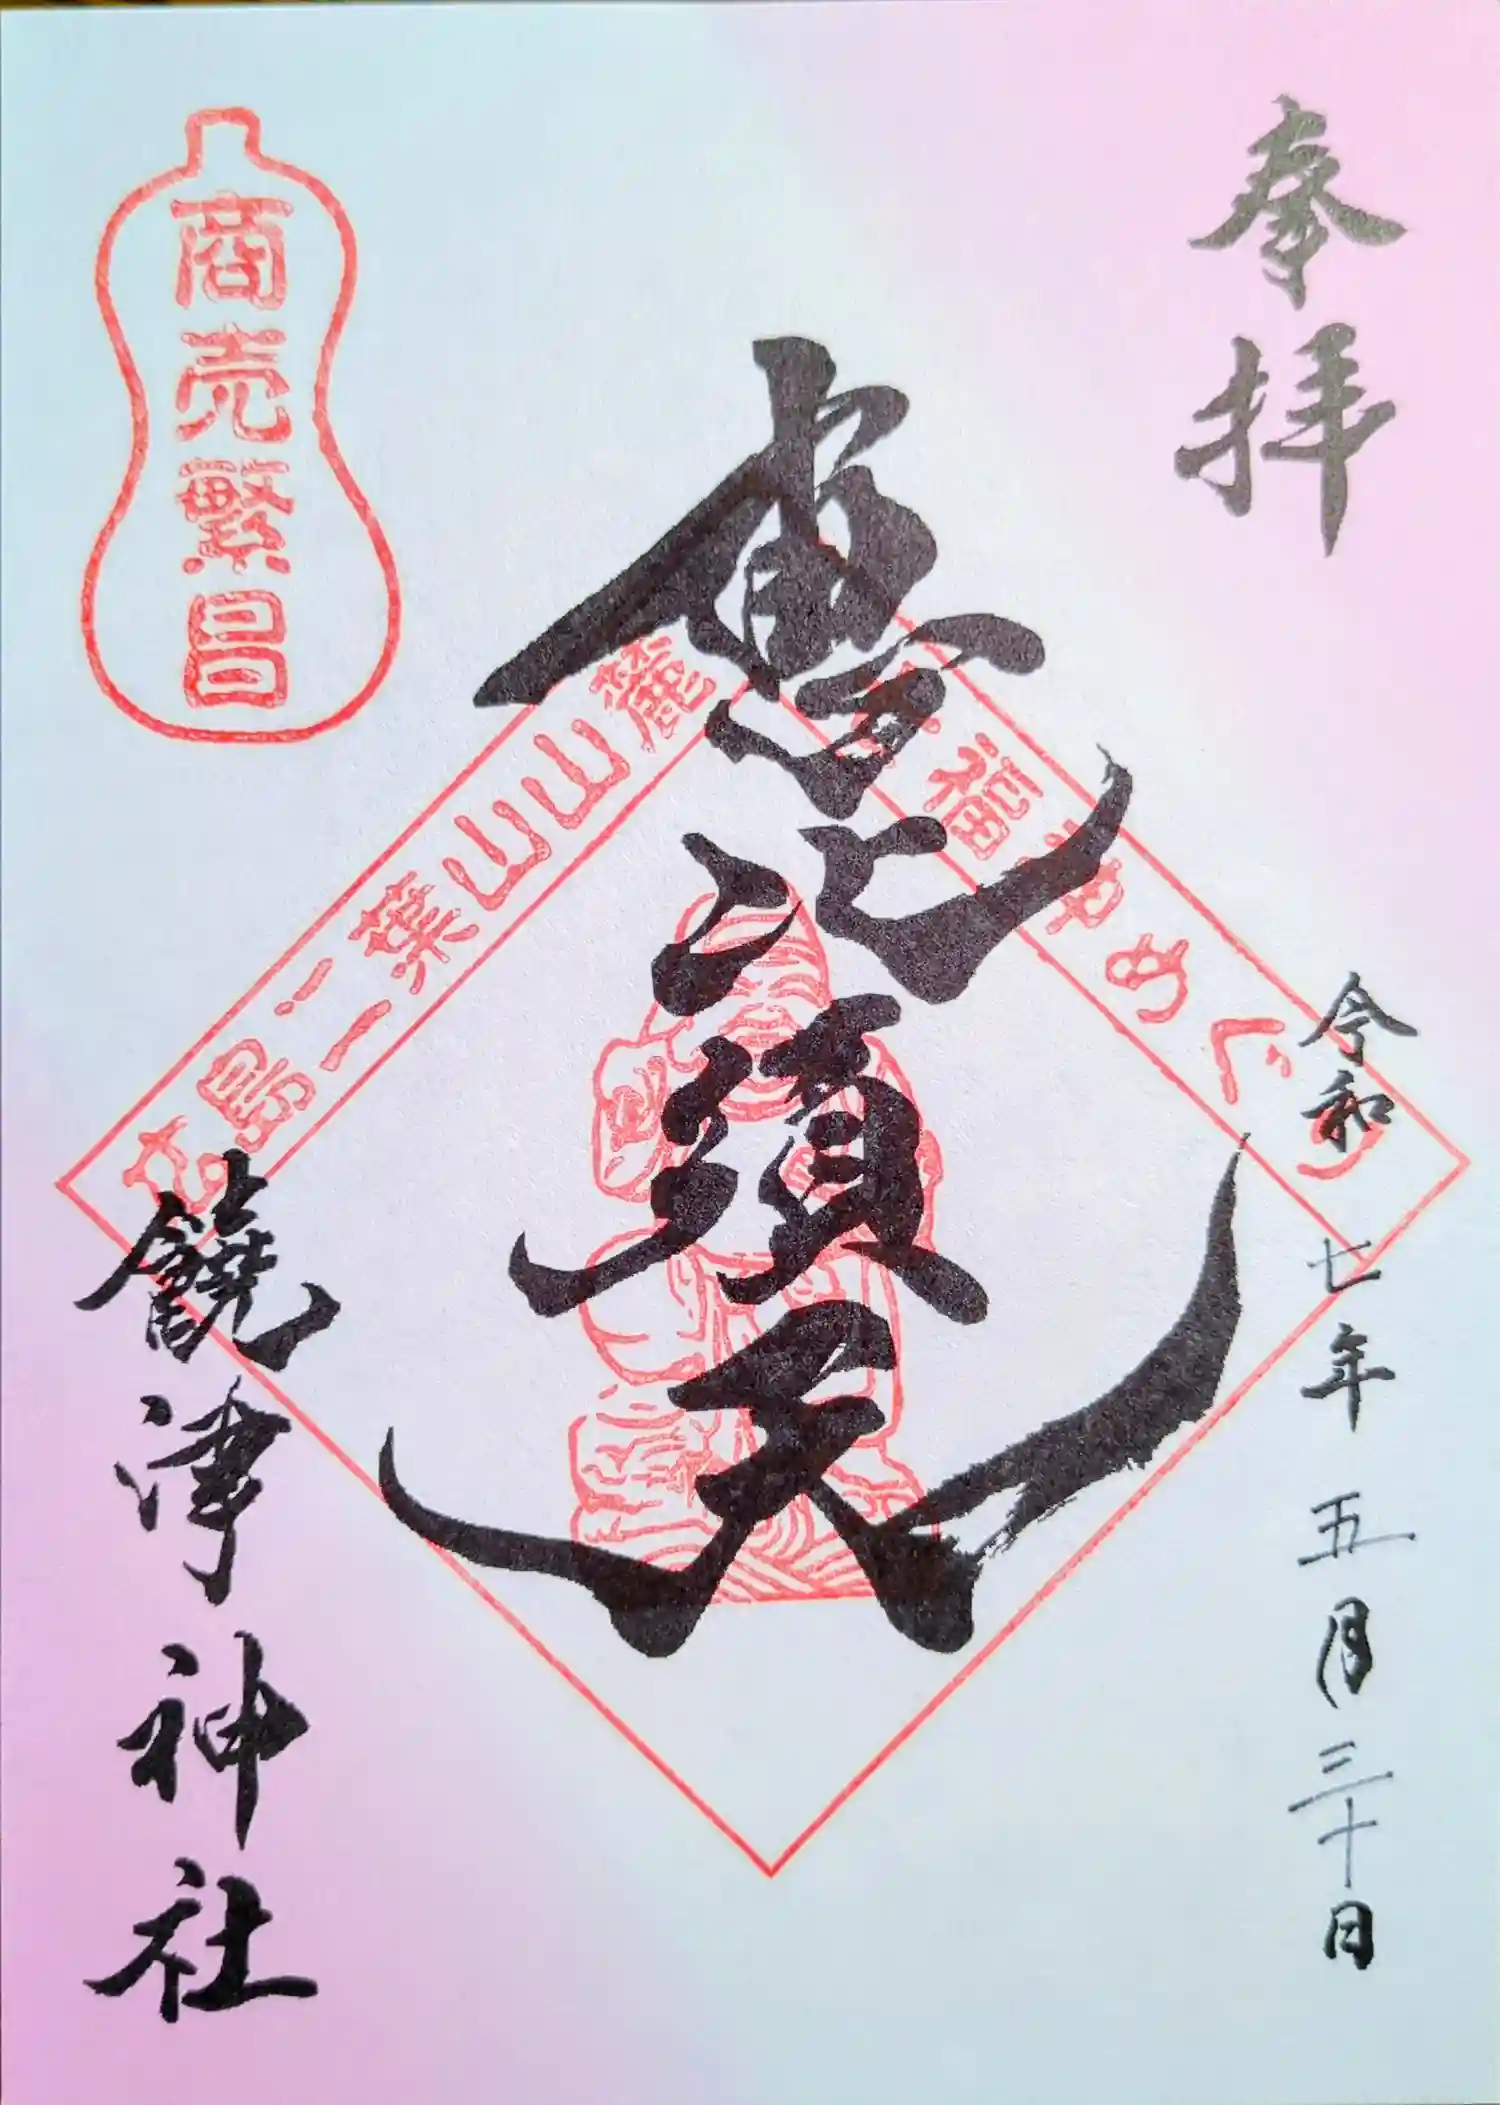 奉拝
令和七年五月三十日
七福神めぐり
恵比須天
広島二葉山山麓
商売繁昌
饒津神社